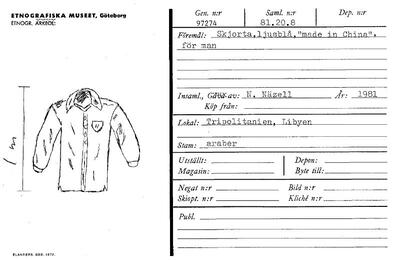 ETNOGRAFISKA MUSEET, Göteborg
ETNOGR. ARKBOL:
1 m
Gen. n:r Saml. n:r Dep. n:r
97274 81.20.8
Föremål: Skjorta,ljusblå,"made in China",
för man
Insaml., Gåva av: N. Näzell År: 1981
Köp från:
Lokal: Tripolitanien, Libyen
Stam: araber
Utställt: Depon:
Magasin: Byte till:
Negat n:r Bild n:r
Skiopt. n:r Kliché n:r
Publ.
ELANDERS, GBG. 1972.